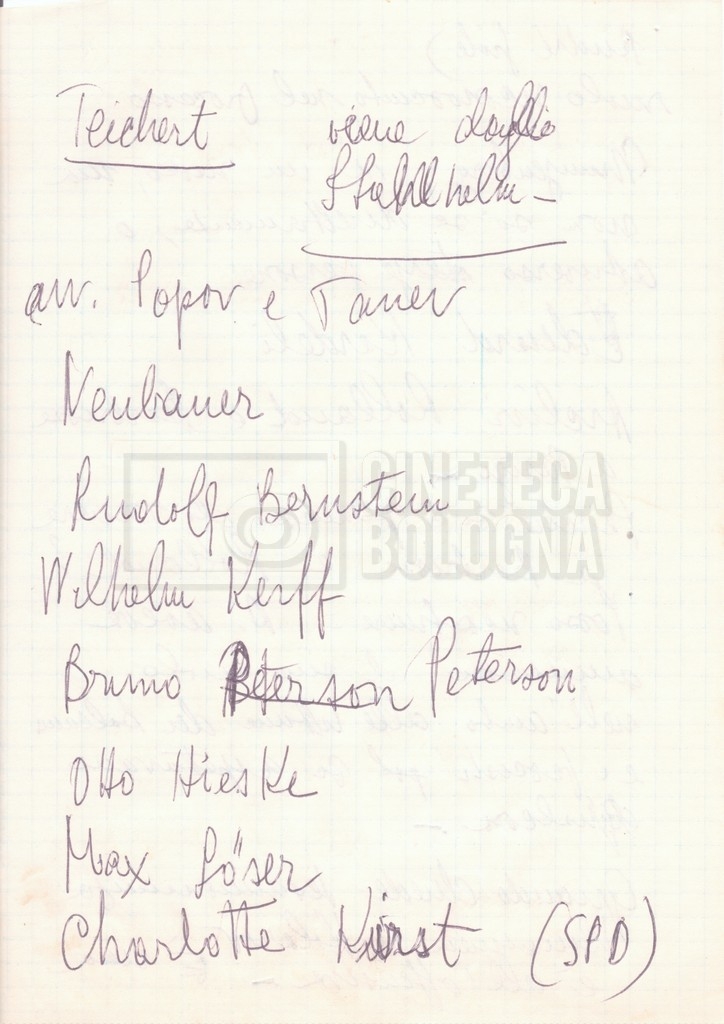 Teichert viene dagli
Stahlhelm -
avv. Popov e Tanev
Neubauer
Rudolf Bernstein
Wilhelm Kerff
Bruno Peterson Peterson
Otto Hieske
Max Löser
Charlotte Kürst (SPD)
CINETECA
BOLOGNA